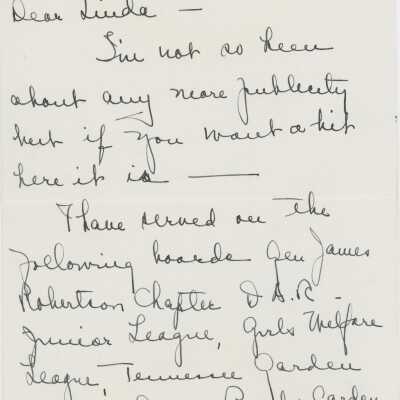 Dear Linda —
I'm not so keen
about any more publicity
but if you want a bit
here it is ———
I have served on the
following boards Gen James
Robertson Chapter D.A.R. -
Junior League, Girls Welfare
League, Tennessee Garden
Garden